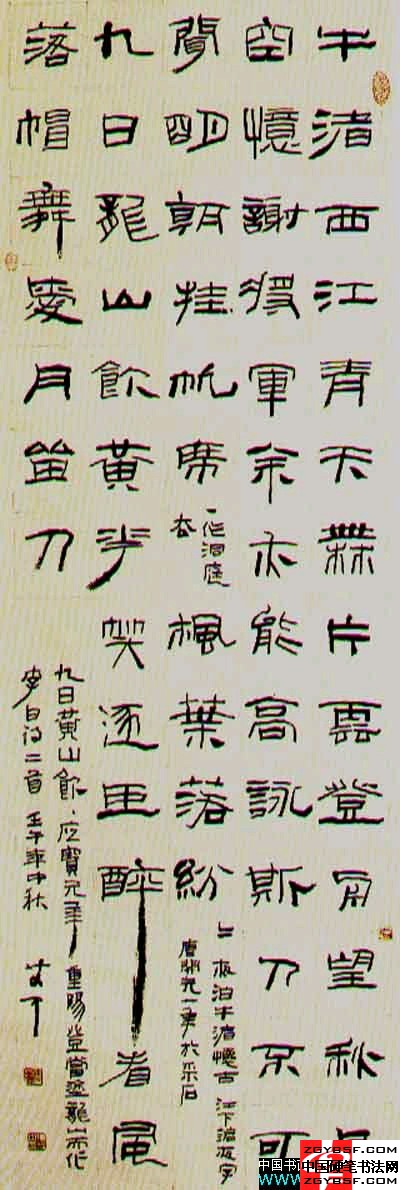 牛渚西江青天無片雲登舟望秋月
空憶謝將軍余亦能高詠斯人不可
聞明朝挂帆席
一作洞庭
去
楓葉落紛
夜泊牛渚懷古
唐開元一年於采石
九日龍山飲黄花笑逐臣醉看風
落帽舞愛月留人
九日黄山飲
寶元年重陽登當塗龍山而作
李白诗二首 壬午年中秋
ZGYBSF.COM
中国硬笔书法网
ZGYBSF.COM